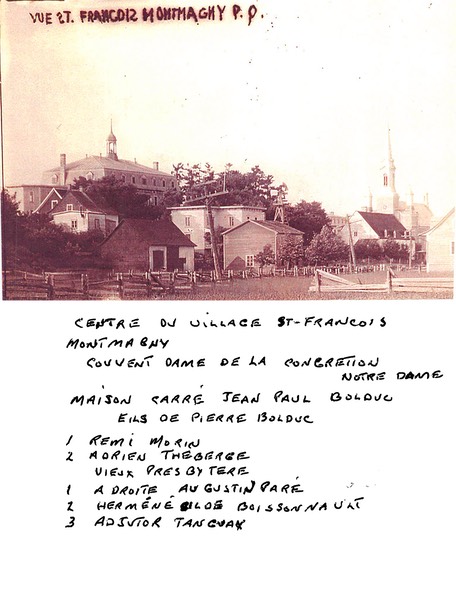 VUE ST. FRANCOIS MONTMAGNY P.Q.
CENTRE DU VILLAGE ST-FRANCOIS
MONTMAGNY
COUVENT DAME DE LA CONGRETION
NOTRE DAME
MAISON CARRÉ JEAN PAUL BOLDUC
FILS DE PIERRE BOLDUC
1 REMI MORIN
2 ADRIEN THEBERGE
VIEUX PRESBYTERE
1 A DROITE AUGUSTIN PARÉ
2 HERMÉNÉGILDE BOISSONNAULT
3 ADJUTOR TANGUAY